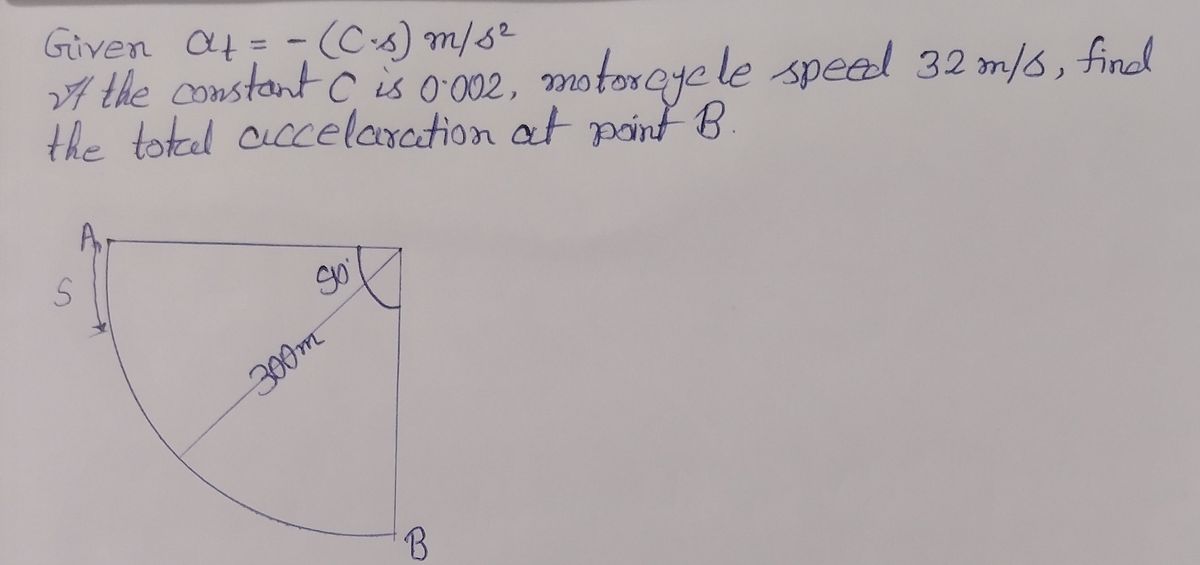 Given at = - (C·s) m/s²
If the constant C is 0.002, motorcycle speed 32 m/s, find
the total accelaration at point B.
A
S
90°
300m
B